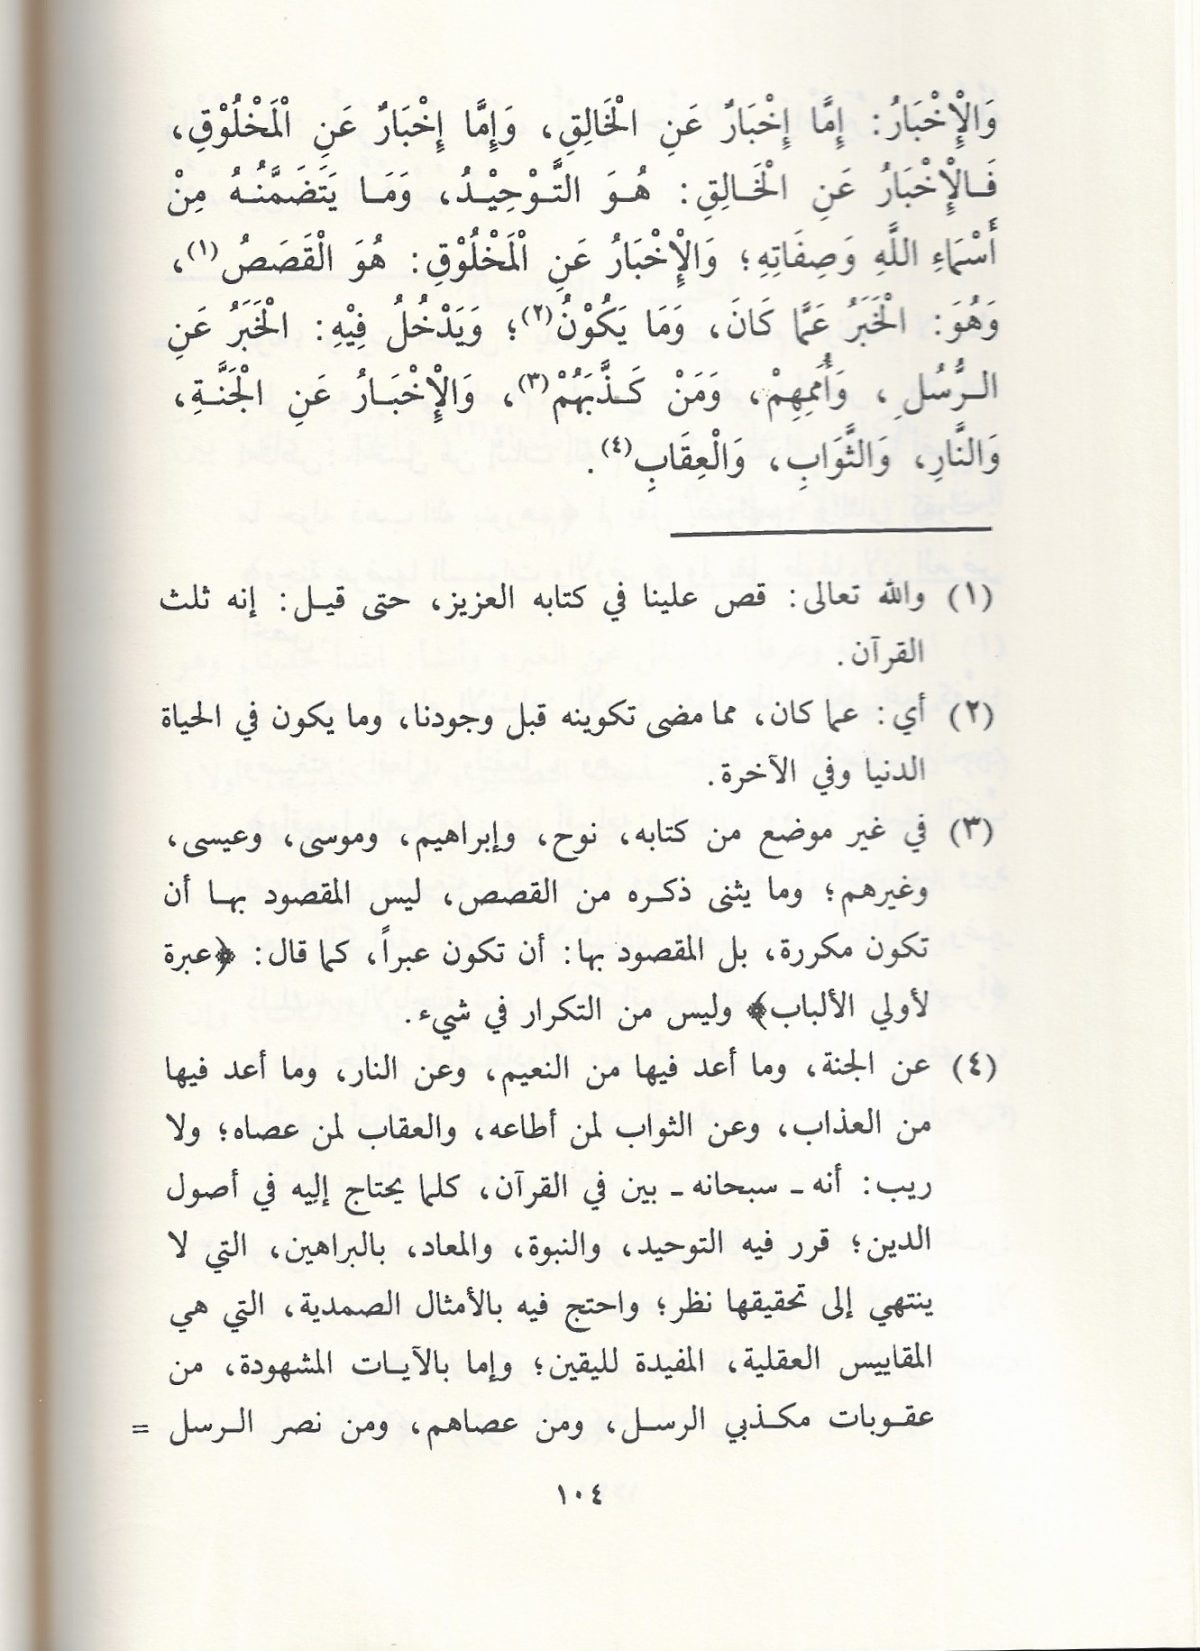 وَالْإِخْبَارُ: إِمَّا إِخْبَارٌ عَنِ الْخَالِقِ، وَإِمَّا إِخْبَارٌ عَنِ الْمَخْلُوْقِ،
فَالْإِخْبَارُ عَنِ الْخَالِقِ: هُوَ التَّوْحِيْدُ، وَمَا يَتَضَمَّنُهُ مِنْ
أَسْمَاءِ اللَّهِ وَصِفَاتِهِ؛ وَالْإِخْبَارُ عَنِ الْمَخْلُوْقِ: هُوَ الْقَصَصُ(١)،
وَهُوَ: الْخَبَرُ عَمَّا كَانَ، وَمَا يَكُوْنُ(٢)؛ وَيَدْخُلُ فِيْهِ: الْخَبَرُ عَنِ
الرُّسُلِ، وَأُمَمِهِمْ، وَمَنْ كَذَّبَهُمْ(٣)، وَالْإِخْبَارُ عَنِ الْجَنَّةِ،
وَالنَّارِ، وَالثَّوَابِ، وَالْعِقَابِ(٤).
(١) والله تعالى: قص علينا في كتابه العزيز، حتى قيل: إنه ثلث
القرآن.
(٢) أي: عما كان، مما مضى تكوينه قبل وجودنا، وما يكون في الحياة
الدنيا وفي الآخرة.
(٣) في غير موضع من كتابه، نوح، وإبراهيم، وموسى، وعيسى،
وغيرهم؛ وما يثنى ذكره من القصص، ليس المقصود بها أن
تكون مكررة، بل المقصود بها: أن تكون عبراً، كما قال: ﴿عبرة
لأولي الألباب﴾ وليس من التكرار في شيء.
(٤) عن الجنة، وما أعد فيها من النعيم، وعن النار، وما أعد فيها
من العذاب، وعن الثواب لمن أطاعه، والعقاب لمن عصاه؛ ولا
ريب: أنه ـ سبحانه ـ بين في القرآن، كلما يحتاج إليه في أصول
الدين؛ قرر فيه التوحيد، والنبوة، والمعاد، بالبراهين، التي لا
ينتهي إلى تحقيقها نظر؛ واحتج فيه بالأمثال الصمدية، التي هي
المقاييس العقلية، المفيدة لليقين؛ وإما بالآيات المشهودة، من
عقوبات مكذبي الرسل، ومن عصاهم، ومن نصر الرسل =
١٠٤